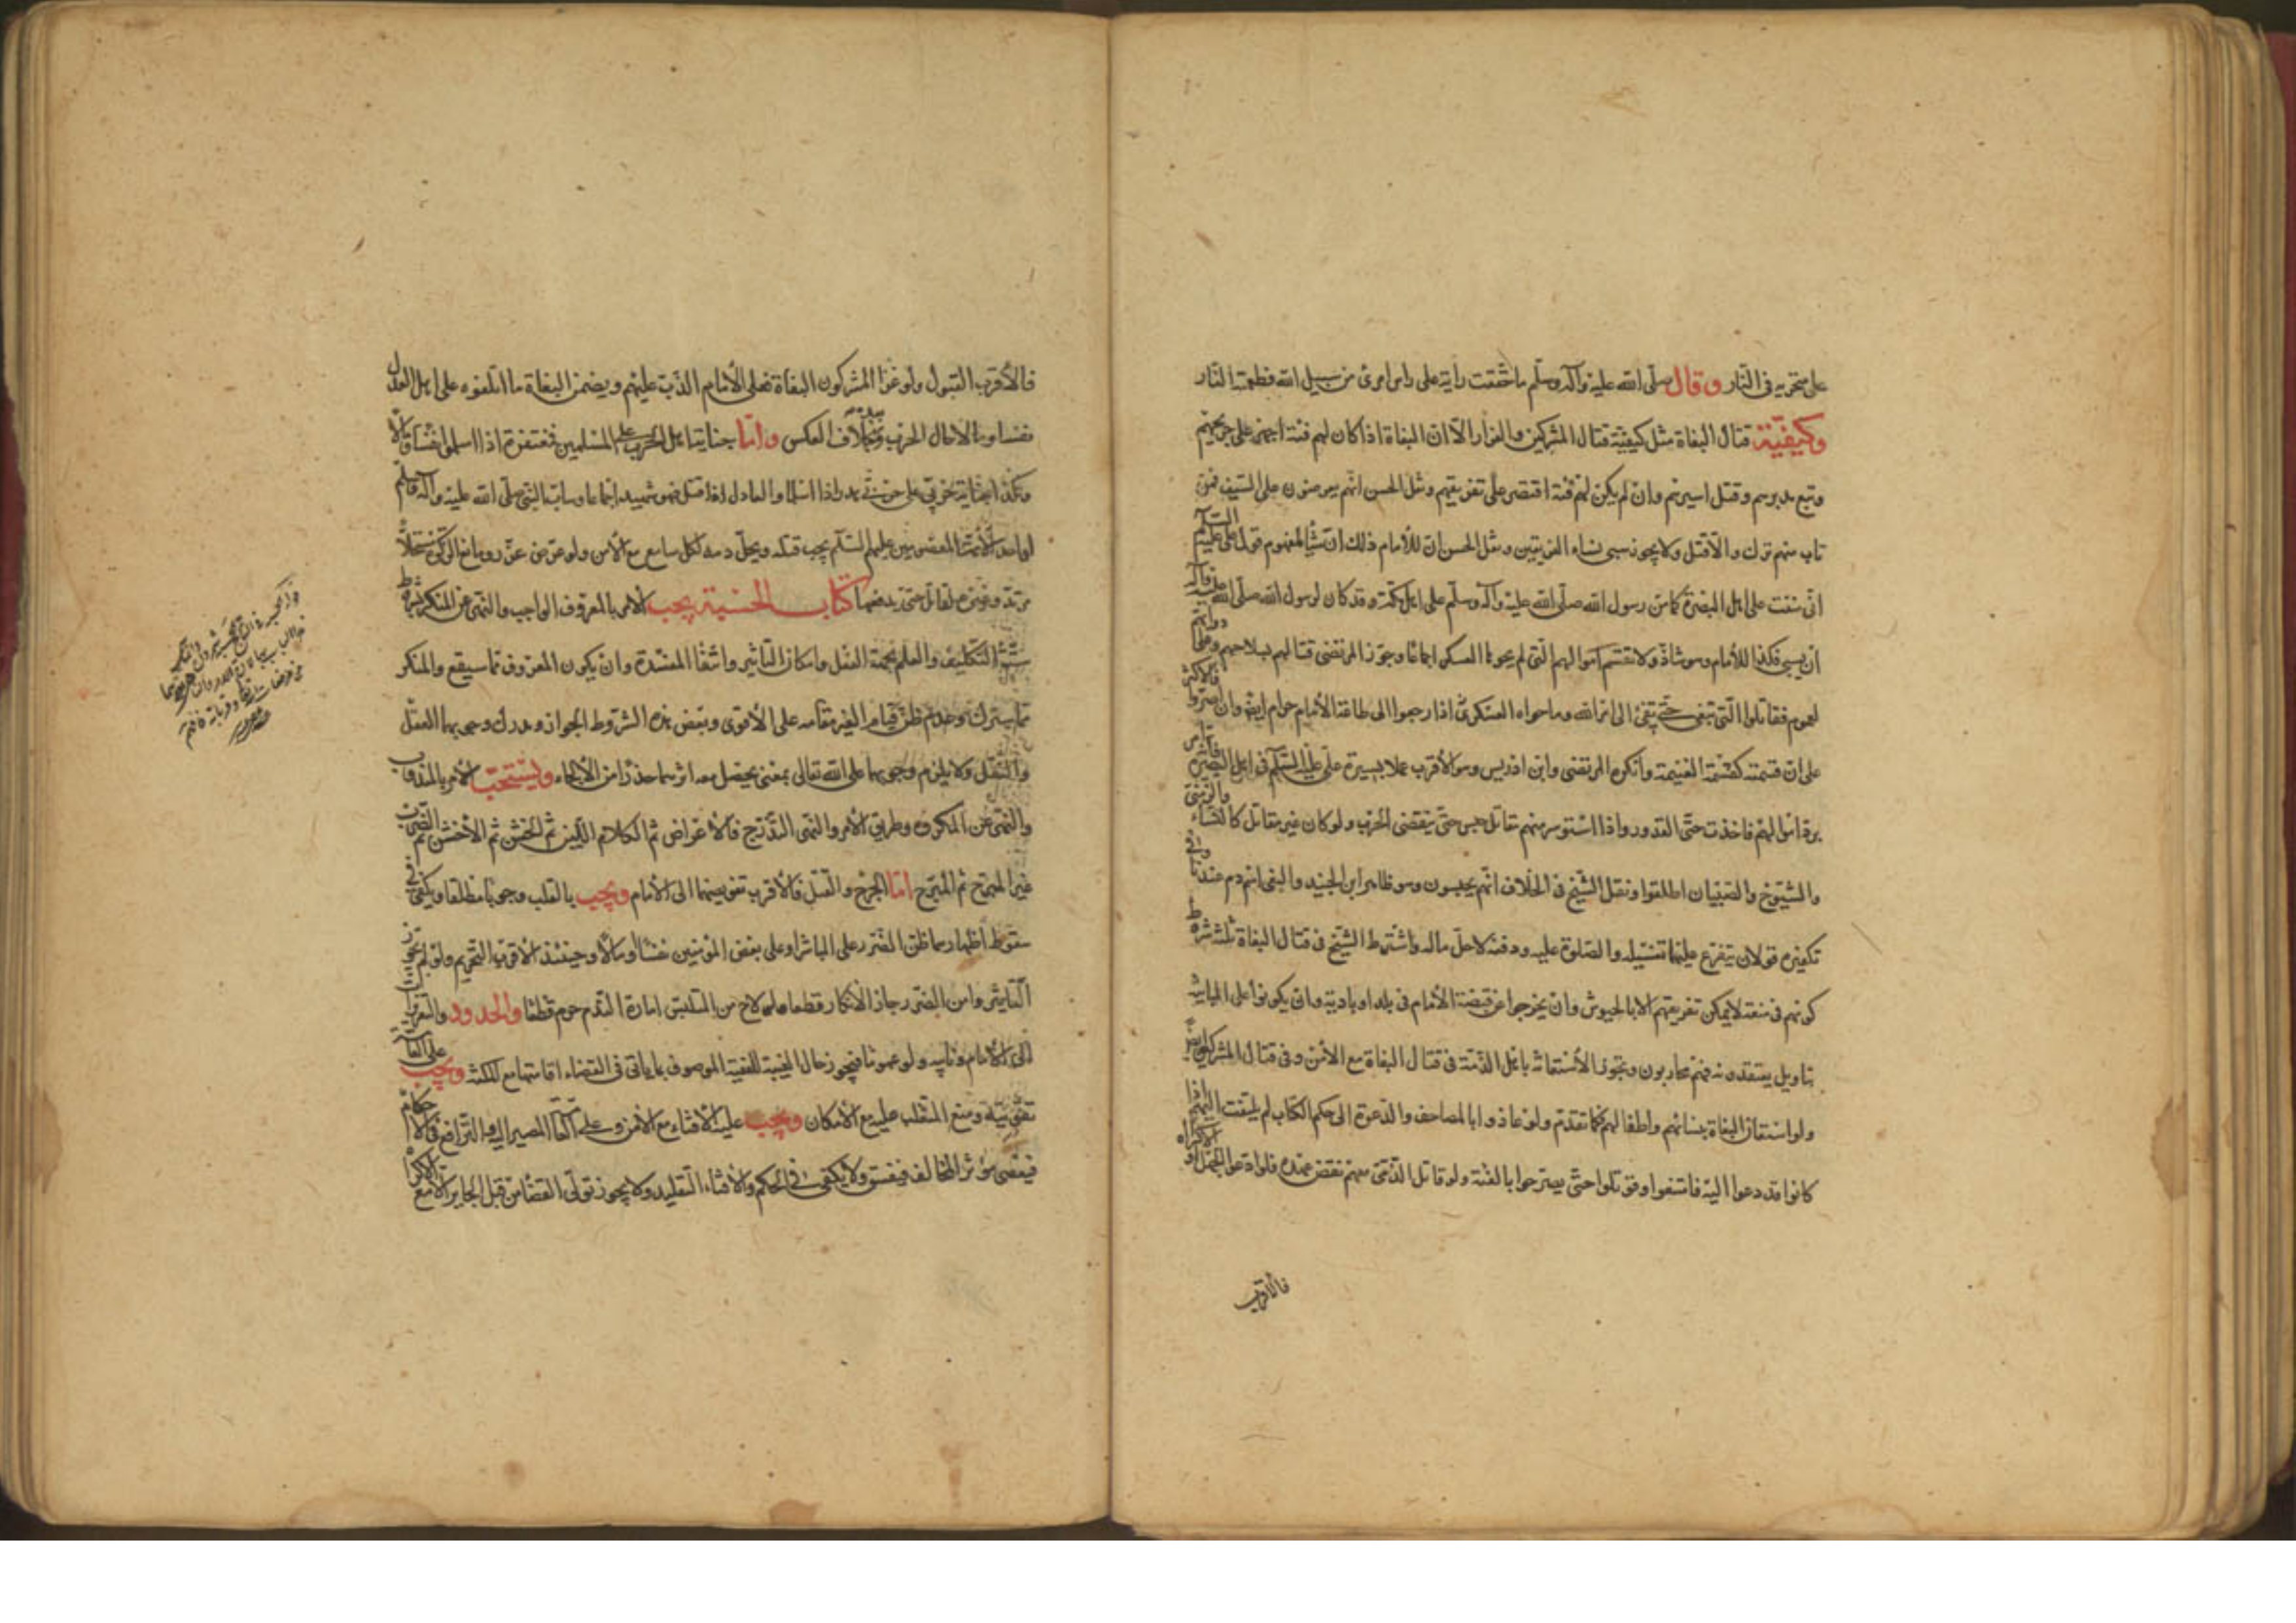 على منخريه في النار وقال صلّى الله عليه وآله وسلّم ما خفقت راية على راس امرئ من سبيل الله فطعمته النار
وكيفيّة قتال البغاة مثل كيفيّة قتال المشركين والفرار الّا انّ البغاة اذا كان لهم فئة اجهز على جريحهم
وتبع مدبرهم وقتل اسيرهم وان لم يكن لهم فئة اقتصر على تفريقهم ونقل الحسن انّهم يعرضون على السّيف فمن
تاب منهم ترك والّا قتل ولا يجوز سبي نساء الفريقين ونقل الحسن انّ للامام ذلك ان شاء لمفهوم قول علي عليه السلام
انّي مننت على اهل البصرة كما منّ رسول الله صلّى الله عليه وآله وسلّم على اهل مكّة وقد كان لرسول الله صلّى الله عليه وآله
ان يسبي فكذا للامام وهو شاذّ ولا تقسم اموالهم الّتي لم يحوها العسكر اجماعا وجوّز المرتضى قتالهم بسلاحهم وعلى دوابهم
لعموم فقاتلوا الّتي تبغي حتّى تفئ الى امر الله وما حواه العسكري اذا رجعوا الى طاعة الامام حرام ايضا وان اصرّوا فالاكثر
على انّ قسمته كقسمة الغنيمة وانكره المرتضى وابن ادريس وهو الاقرب عملا بسيرة علي عليه السّلم في اهل البصرة فانه امر
بردّ اموالهم فاخذت حتّى القدور واذا استوسر منهم مقاتل حبس حتّى ينقضي الحرب ولو كان غير مقاتل كالنساء والزمنى
والشيوخ والصبيان اطلقوا ونقل الشيخ في الخلاف انّهم يحبسون وهو ظاهر ابن الجنيد والبغي اسم ذم عندنا وفي
تكفيره قولان يتفرع عليهما تغسيله والصلوة عليه ودفنه لا حلّ ماله واشترط الشيخ في قتال البغاة ثلثة شروط
كونهم في منعة لا يمكن تفريقهم الا بالجيوش وان يخرجوا عن قبضة الامام في بلد او بادية وان يكونوا على المباينة
بتاويل يعتقدونه فهم محاربون ويجوز الاستعانة باهل الذمّة في قتال البغاة مع الامن وفي قتال المشركين ايضا
ولو استعان البغاة بنسائهم واطفالهم فكما تقدّم ولو عاذوا بالمصاحف والدعوة الى حكم الكتاب لم يلتفت اليهم اذا
كانوا قد دعوا اليه فامتنعوا وقوتلوا حتّى يصرحوا بالفئة ولو قاتل الذمّي معهم نقض عهده فلو ادعوا الجهل او الاكراه
فالاقرب
فالأقرب القبول ولو غزا المشركون البغاة فعلى الامام الذبّ عليهم ويضمن البغاة ما اتلفوه على اهل العدل
نفسا ومالا حال الحرب وبخلاف العكس وامّا جناية اهل الحرب على المسلمين فمغتفرة اذا اسلموا نفسا ومالا
وكذا جناية حربي على حربي هدر اذا اسلما والعادل اذا قتل فهو شهيد اجماعا وسابّ النبي صلّى الله عليه وآله وسلم
او احد الائمة المعصومين عليهم السّلم يجب قتله ويحلّ دمه لكل سامع مع الامن ولو عرّض عزّر ومانع الزكوة مستحلّا
مرتدّ وغيره يقاتل حتى يدفعها كتاب الحسبة يجب الامر بالمعروف الواجب والنهي عن المنكر بشروط
ستّة التكليف والعلم بجهة الفعل وامكان التاثير وانتفاء المفسدة وان يكون المعروف مما سيقع والمنكر
مما سيترك وعدم ظنّ قيام الغير مقامه على الاقوى وببعض هذه الشروط الجواز ومدرك وجوبهما العقل
والنقل ولا يلزم وجوبهما على الله تعالى بمعنى يحصل معه اثرهما حذرا من الالجاء ويستحب الامر بالمندوب
والنهي عن المكروه وطريق الامر والنهي التدرّج فالاعراض ثم الكلام اللّين ثم الخشن ثم الاخشن ثم الضرب
غير المبرّح ثم المبرّح امّا الجرح والقتل فالاقرب تفويضهما الى الامام ويجب بالقلب وجوبا مطلقا ويكفي في
سقوط اظهارهما ظنّ الضرر على المباشر او على بعض المؤمنين نفسا او مالا وحينئذ الاقرب التحريم ولو لم يجوّز
التاثير وامن الضرر جاز الانكار قطعا ولو لاح من المتلبّس امارة النّدم حرم قطعا والحدود والتعزيرات
الى الامام ونايبه ولو عموما فيجوز حال الغيبة للفقيه الموصوف بما ياتي في القضاء اقامتها مع المكنة ويجب على العامة
تقويته ومنع المتغلب عليه مع الامكان ويجب عليه الافتاء مع الامن وعلى العامّة المصير اليه والترافع في الاحكام
فيعصي مؤثر المخالف فيفسق ولا يكفي في الحكم والافتاء التقليد ولا يجوز تولّي القضاء من قبل الجاير الا مع الاكراه